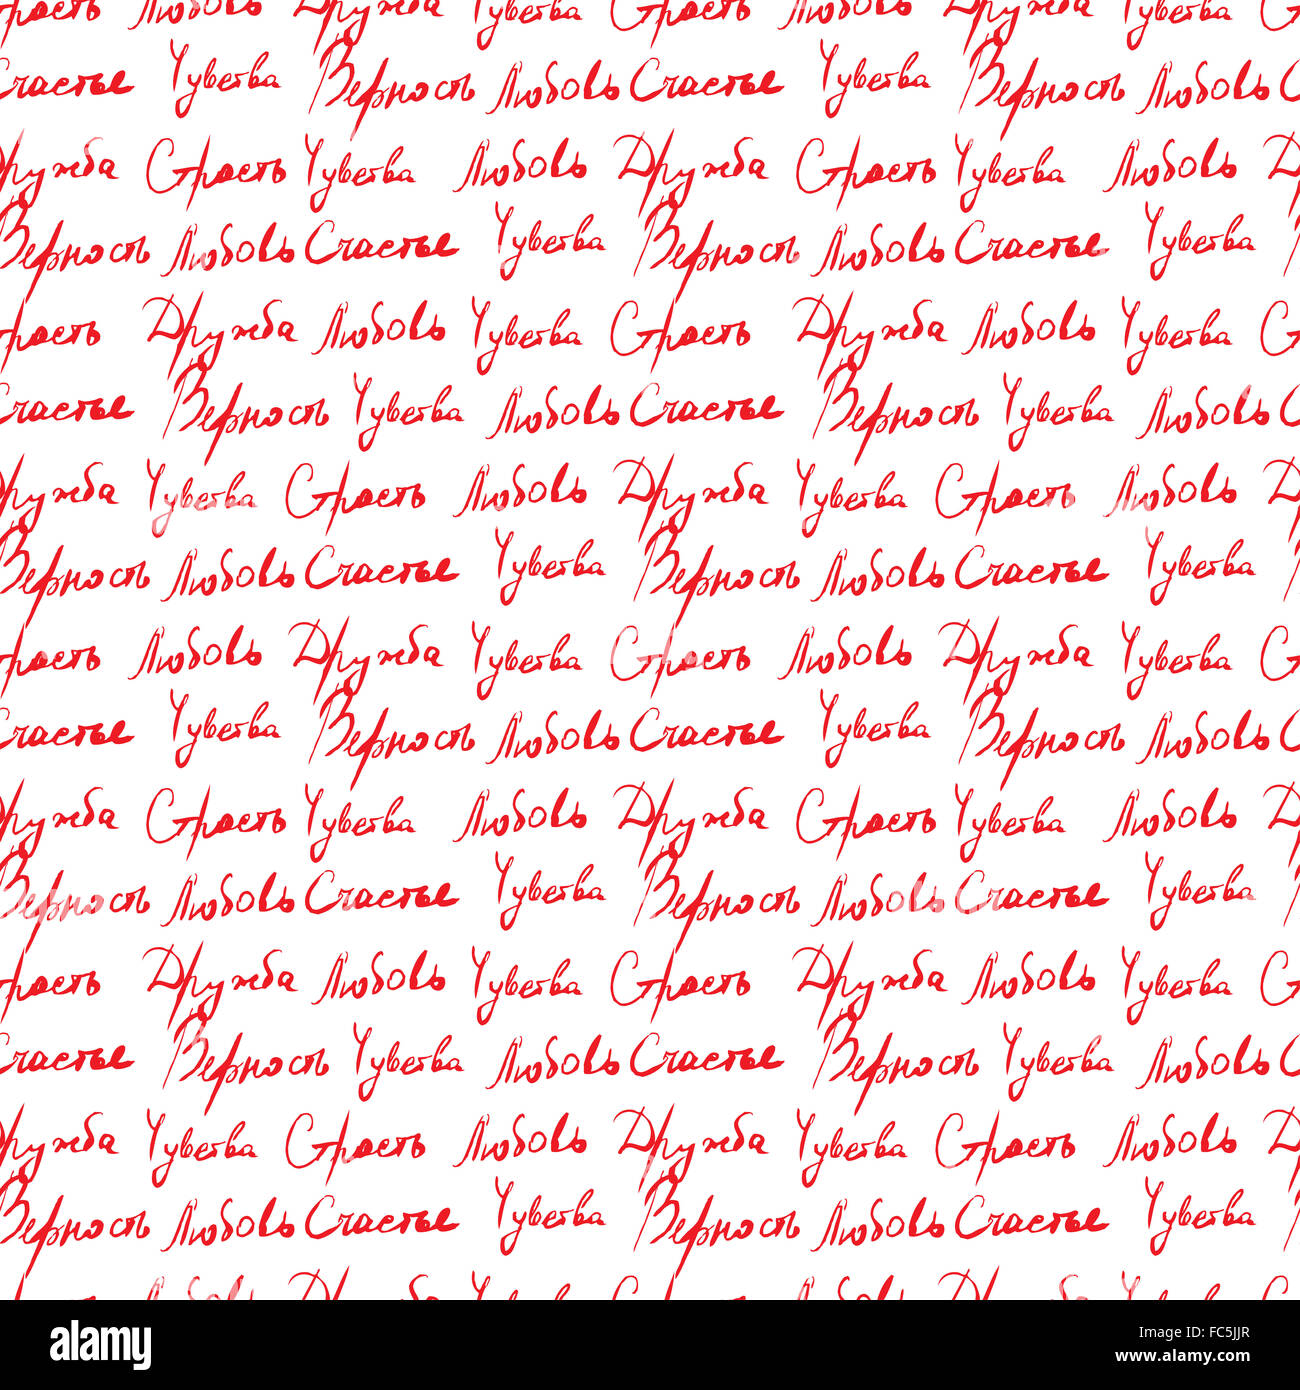 Страсть Любовь Дружба Чувства Страсть Любовь Дружба Чувства
Счастье Чувства Верность Любовь Счастье Чувства Верность Любовь
Дружба Страсть Чувства Любовь Дружба Страсть Чувства Любовь
Верность Любовь Счастье Чувства Верность Любовь Счастье Чувства
Страсть Дружба Любовь Чувства Страсть Дружба Любовь Чувства
Счастье Верность Чувства Любовь Счастье Верность Чувства Любовь
Дружба Чувства Страсть Любовь Дружба Чувства Страсть Любовь
Верность Любовь Счастье Чувства Верность Любовь Счастье Чувства
Страсть Любовь Дружба Чувства Страсть Любовь Дружба Чувства
Счастье Чувства Верность Любовь Счастье Чувства Верность Любовь
Дружба Страсть Чувства Любовь Дружба Страсть Чувства Любовь
Верность Любовь Счастье Чувства Верность Любовь Счастье Чувства
Страсть Дружба Любовь Чувства Страсть Дружба Любовь Чувства
Счастье Верность Чувства Любовь Счастье Верность Чувства Любовь
Дружба Чувства Страсть Любовь Дружба Чувства Страсть Любовь
Верность Любовь Счастье Чувства Верность Любовь Счастье Чувства
alamy stock photo
FC5JJR
www.alamy.com